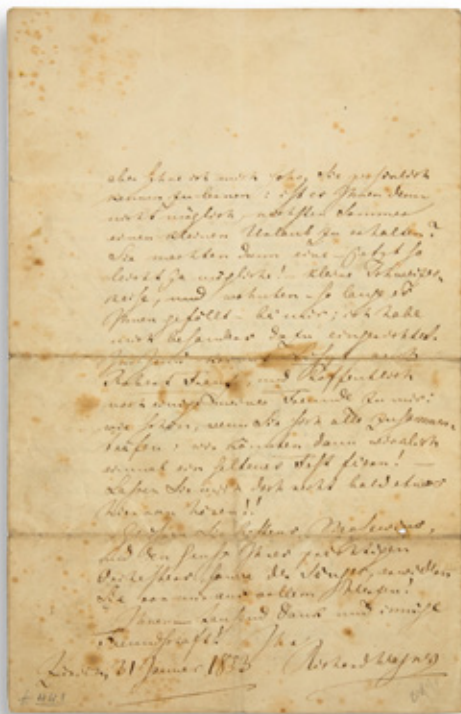 aber sehne ich mich sehr, Sie persönlich
kennen zu lernen: ist es Ihnen denn
nicht möglich, nächsten Sommer
einen kleinen Urlaub zu erhalten?
Sie machten dann eine (jetzt so
leicht zu mögliche!) kleine Schweizer-
reise, und wohnten – so lange es
Ihnen gefällt – bei mir; ich habe
mich besonders dazu eingerichtet.
Im Juni kommt auch
Robert Franz, und hoffentlich
noch einige meiner Freunde zu mir:
wie schön, wenn Sie sich alle zusammen-
träfen; wir könnten dann wirklich
einmal ein seltenes Fest feiern! –
Lassen Sie mich doch recht bald etwas
hiervon hören!!
Grüßen Sie bestens
und den Ihres
Orchesters, sowie die Sänger,
Sie von mir aus vollem Herzen!
Ihnen tausend Dank und innige
Freundschaft! Ihr
Zürich, 31 Januar 1853 Richard Wagner